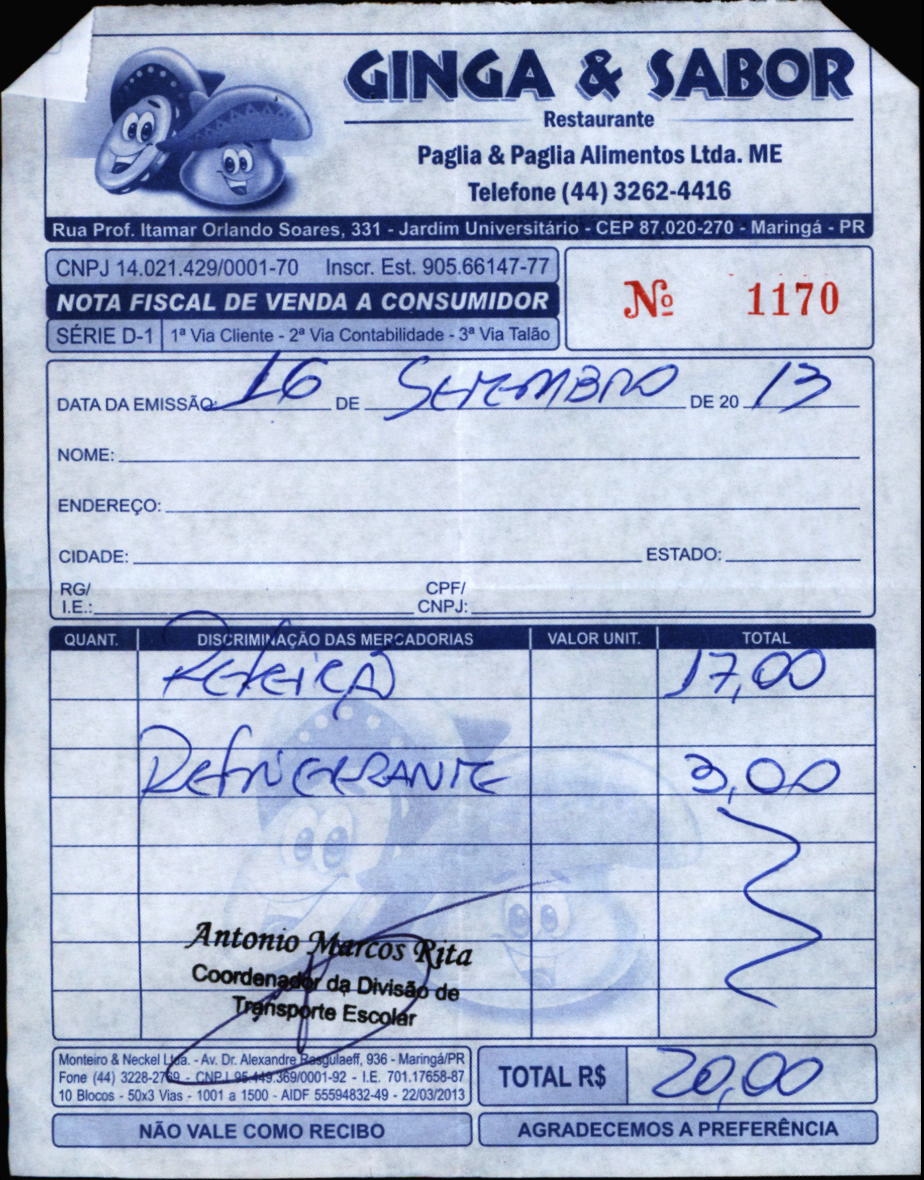 GINGA & SABOR
Restaurante
Paglia & Paglia Alimentos Ltda. ME
Telefone (44) 3262-4416
Rua Prof. Itamar Orlando Soares, 331 - Jardim Universitário - CEP 87.020-270 - Maringá - PR
CNPJ 14.021.429/0001-70 Inscr. Est. 905.66147-77
NOTA FISCAL DE VENDA A CONSUMIDOR
Nº 1170
SÉRIE D-1 1ª Via Cliente - 2ª Via Contabilidade - 3ª Via Talão
DATA DA EMISSÃO: 16 DE SETEMBRO DE 20 13
NOME:
ENDEREÇO:
CIDADE: ESTADO:
RG/ CPF/
I.E.: CNPJ:
QUANT. DISCRIMINAÇÃO DAS MERCADORIAS VALOR UNIT. TOTAL
Refeição 17,00
Refrigerante 3,00
Antonio Marcos Rita
Coordenador da Divisão de
Transporte Escolar
Monteiro & Neckel Ltda. - Av. Dr. Alexandre Rasgulaeff, 936 - Maringá/PR
Fone (44) 3228-2769 - CNPJ 95.449.369/0001-92 - I.E. 701.17658-87
10 Blocos - 50x3 Vias - 1001 a 1500 - AIDF 55594832-49 - 22/03/2013
TOTAL R$ 20,00
NÃO VALE COMO RECIBO
AGRADECEMOS A PREFERÊNCIA